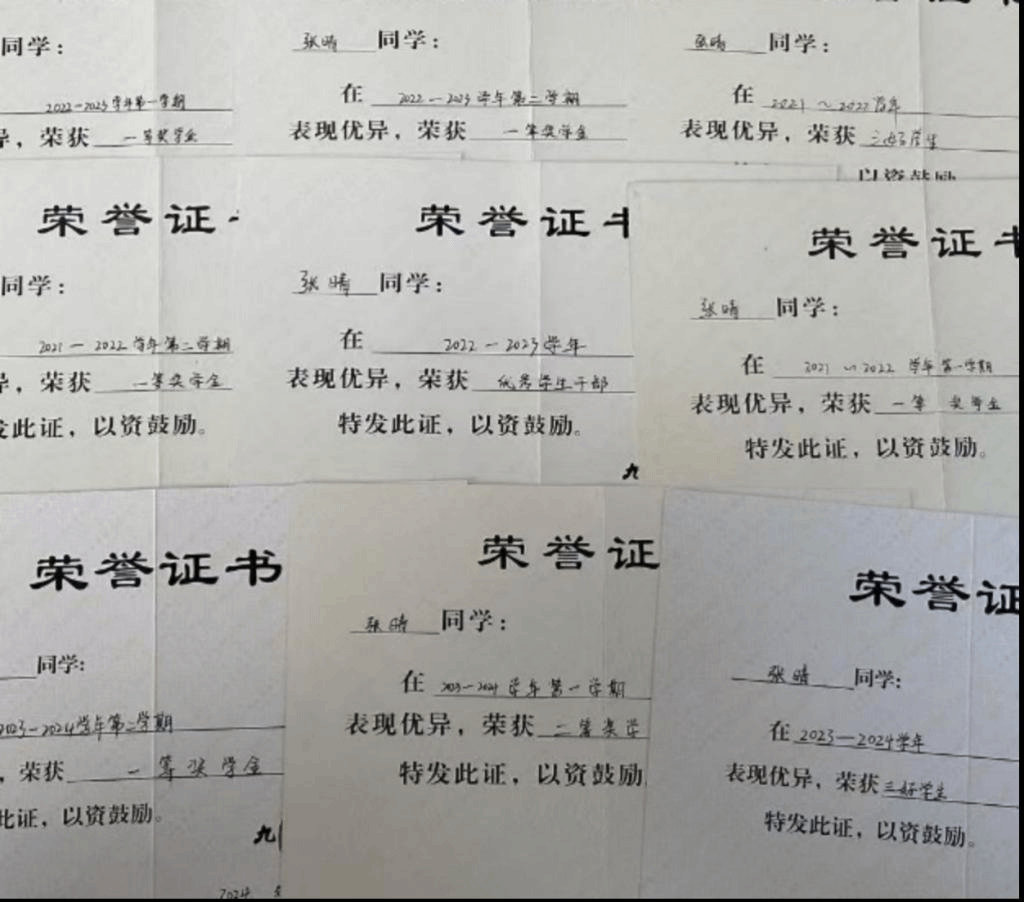 同学：
2022-2023学年第一学期
异，荣获 一等奖学金
张晴 同学：
在 2022-2023学年第二学期
表现优异，荣获 一等奖学金
张晴 同学：
在 2021~2022学年
表现优异，荣获 三好学生
以资鼓励
荣誉证
同学：
2021-2022学年第二学期
异，荣获 一等奖学金
发此证，以资鼓励。
荣誉证书
张晴 同学：
在 2022-2023学年
表现优异，荣获 优秀学生干部
特发此证，以资鼓励。
九
荣誉证书
张晴 同学：
在 2021~2022 学年第一学期
表现优异，荣获 一等奖学金
特发此证，以资鼓励。
荣誉证书
同学：
2023-2024学年第二学期
，荣获 一等奖学金
此证，以资鼓励。
九
2024
荣誉证
张晴 同学：
在 2023-2024学年第一学期
表现优异，荣获 二等奖学
特发此证，以资鼓励
荣誉证
张晴 同学：
在 2023—2024学年
表现优异，荣获 三好学生
特发此证，以资鼓励。